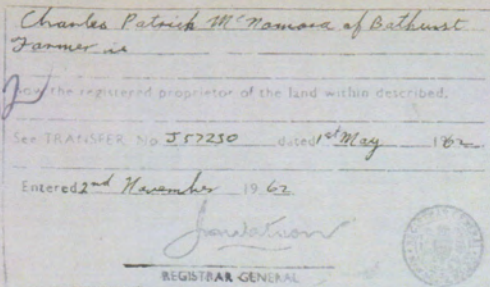 Charles Patrick McNamara of Bathurst
Farmer is
now the registered proprietor of the land within described.
See TRANSFER No J57250 dated 1st May 1962
Entered 2nd November 1962
REGISTRAR GENERAL